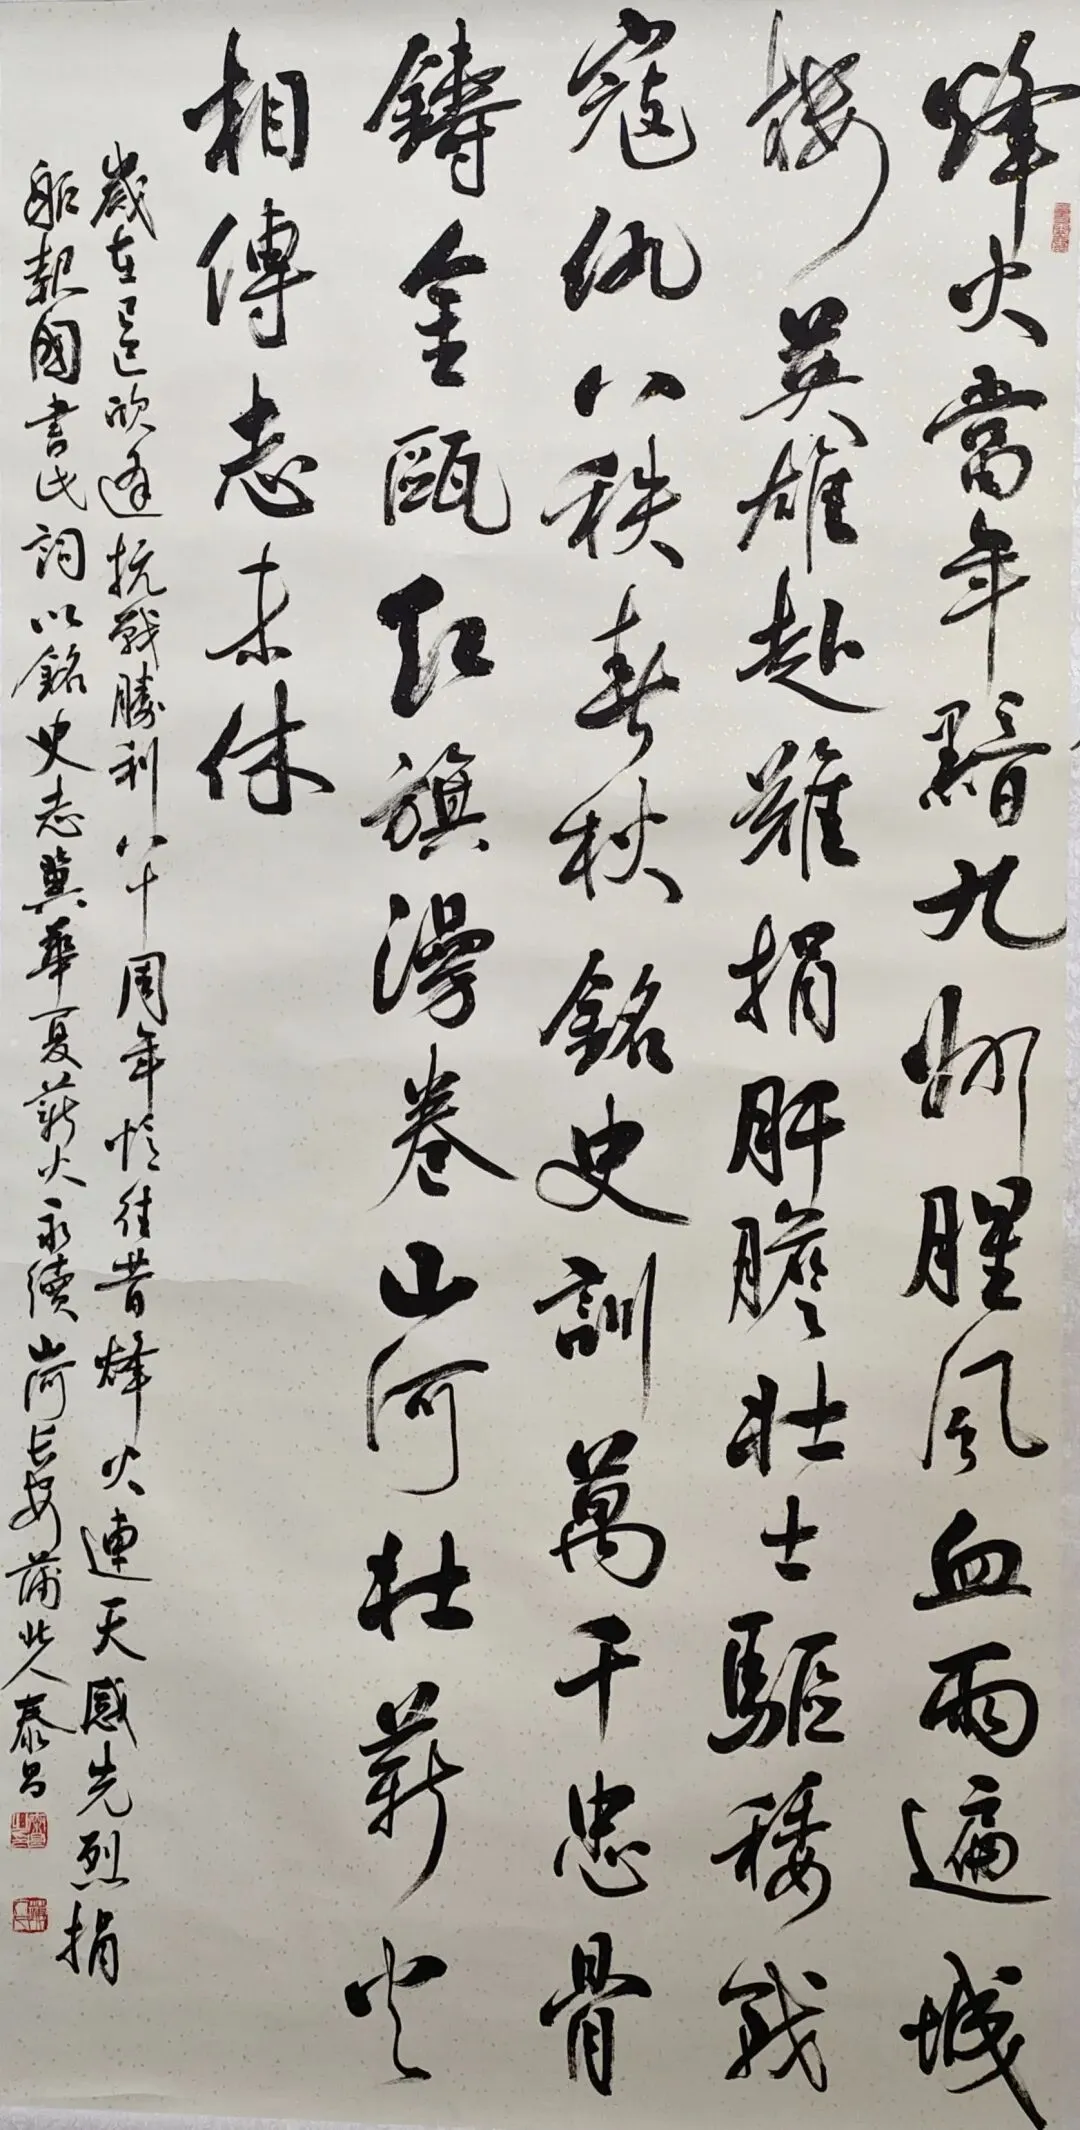 烽火當年黯九州腥風血雨遍城
樓英雄赴難捐肝膽壯士驅倭戰
寇仇八秩春秋銘史訓萬千忠骨
鑄金甌紅旗漫卷山河壯薪火
相傳志未休
歲在乙巳欣逢抗戰勝利八十周年憶往昔烽火連天感先烈捐
軀報國書此詞以銘史志冀華夏薪火永續山河長安蒲北人泰昌